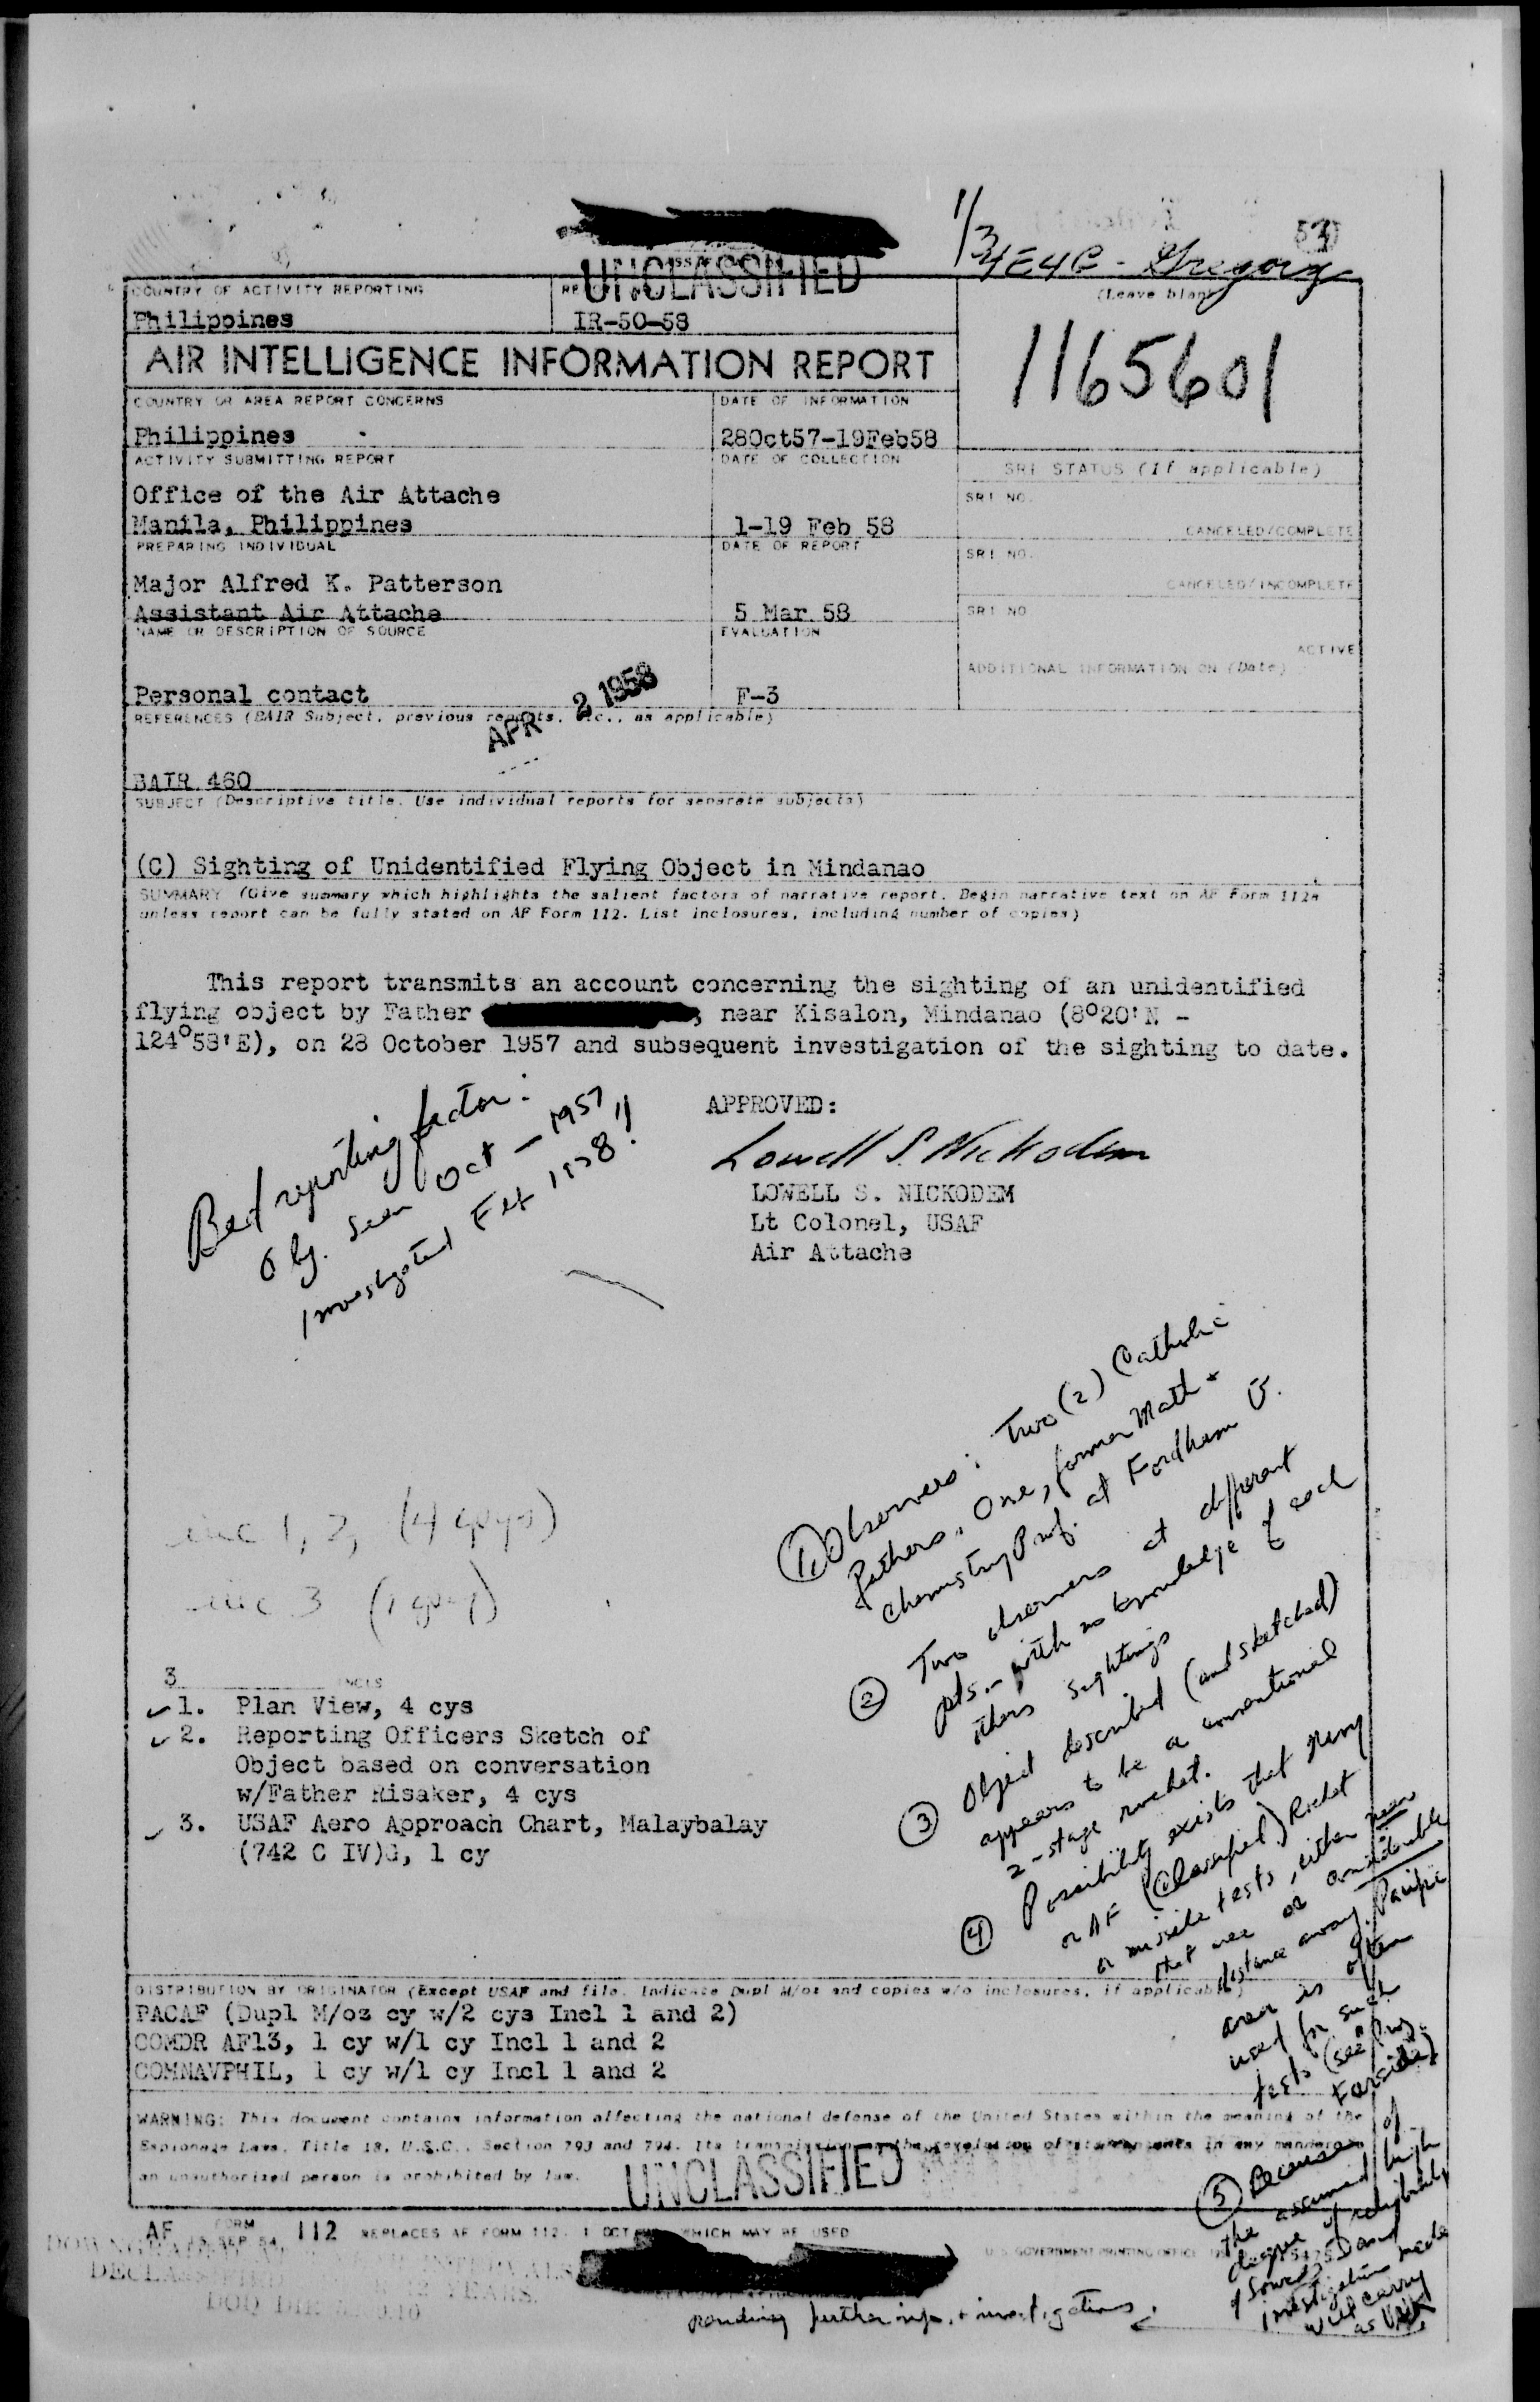 UNCLASSIFIED
E4E4G - Gregory
COUNTRY OF ACTIVITY REPORTING
(Leave blank)
Philippines
IR-50-58
AIR INTELLIGENCE INFORMATION REPORT
1165601
COUNTRY OR AREA REPORT CONCERNS
DATE OF INFORMATION
Philippines
28Oct57-19Feb58
ACTIVITY SUBMITTING REPORT
DATE OF COLLECTION
SRI STATUS (If applicable)
Office of the Air Attache
SRI NO.
Manila, Philippines
1-19 Feb 58
CANCELED/COMPLETE
PREPARING INDIVIDUAL
DATE OF REPORT
SRI NO.
Major Alfred K. Patterson
CANCELED/INCOMPLETE
Assistant Air Attache
5 Mar 58
SRI NO
NAME OR DESCRIPTION OF SOURCE
EVALUATION
ACTIVE
ADDITIONAL INFORMATION ON (Date)
Personal contact
F-3
APR 2 1958
REFERENCES (BAIR Subject, previous reports, etc., as applicable)
BAIR 460
SUBJECT (Descriptive title. Use individual reports for separate subjects)
(C) Sighting of Unidentified Flying Object in Mindanao
SUMMARY (Give summary which highlights the salient factors of narrative report. Begin narrative text on AF Form 112a
unless report can be fully stated on AF Form 112. List inclosures, including number of copies)
This report transmits an account concerning the sighting of an unidentified
flying object by Father , near Kisalon, Mindanao (8°20'N -
124°58'E), on 28 October 1957 and subsequent investigation of the sighting to date.
Bad reporting factor:
Obj. seen Oct - 1957,
investigated Feb 1958!!
APPROVED:
Lowell S. Nickodem
LOWELL S. NICKODEM
Lt Colonel, USAF
Air Attache
① Observers: Two (2) Catholic
Fathers, One, former Math +
Chemistry Prof. at Fordham U.
② Two observers at different
pts. - with no knowledge of each
others sightings
③ Object described (and sketched)
appears to be a conventional
2-stage rocket.
④ Possibility exists that Navy
or AF (Classified) Rocket
or missile tests, either near
that area or considerable
distance away. Pacific
area is often
used for such
tests (see Proj.
Farside)
⑤ Because of
the assumed high
degree of reliability
of source, and
investigation made
will carry
as UNK
pending further info. + investigations.
inc 1, 2, (4 cpys)
inc 3 (1 cpy)
3 INCLS
1. Plan View, 4 cys
2. Reporting Officers Sketch of
Object based on conversation
w/Father Risaker, 4 cys
3. USAF Aero Approach Chart, Malaybalay
(742 C IV)G, 1 cy
DISTRIBUTION BY ORIGINATOR (Except USAF and file. Indicate Dupl M/oz and copies w/o inclosures, if applicable)
PACAF (Dupl M/oz cy w/2 cys Incl 1 and 2)
COMDR AF13, 1 cy w/1 cy Incl 1 and 2
COMNAVPHIL, 1 cy w/1 cy Incl 1 and 2
WARNING: This document contains information affecting the national defense of the United States within the meaning of the
Espionage Laws, Title 18, U.S.C., Section 793 and 794. Its transmission or the revelation of its contents in any manner to
an unauthorized person is prohibited by law.
UNCLASSIFIED
AF FORM 15 SEP 54 112 REPLACES AF FORM 112, 1 OCT WHICH MAY BE USED
U.S. GOVERNMENT PRINTING OFFICE
DECLASSIFIED 12 YEARS.
DOD DIR